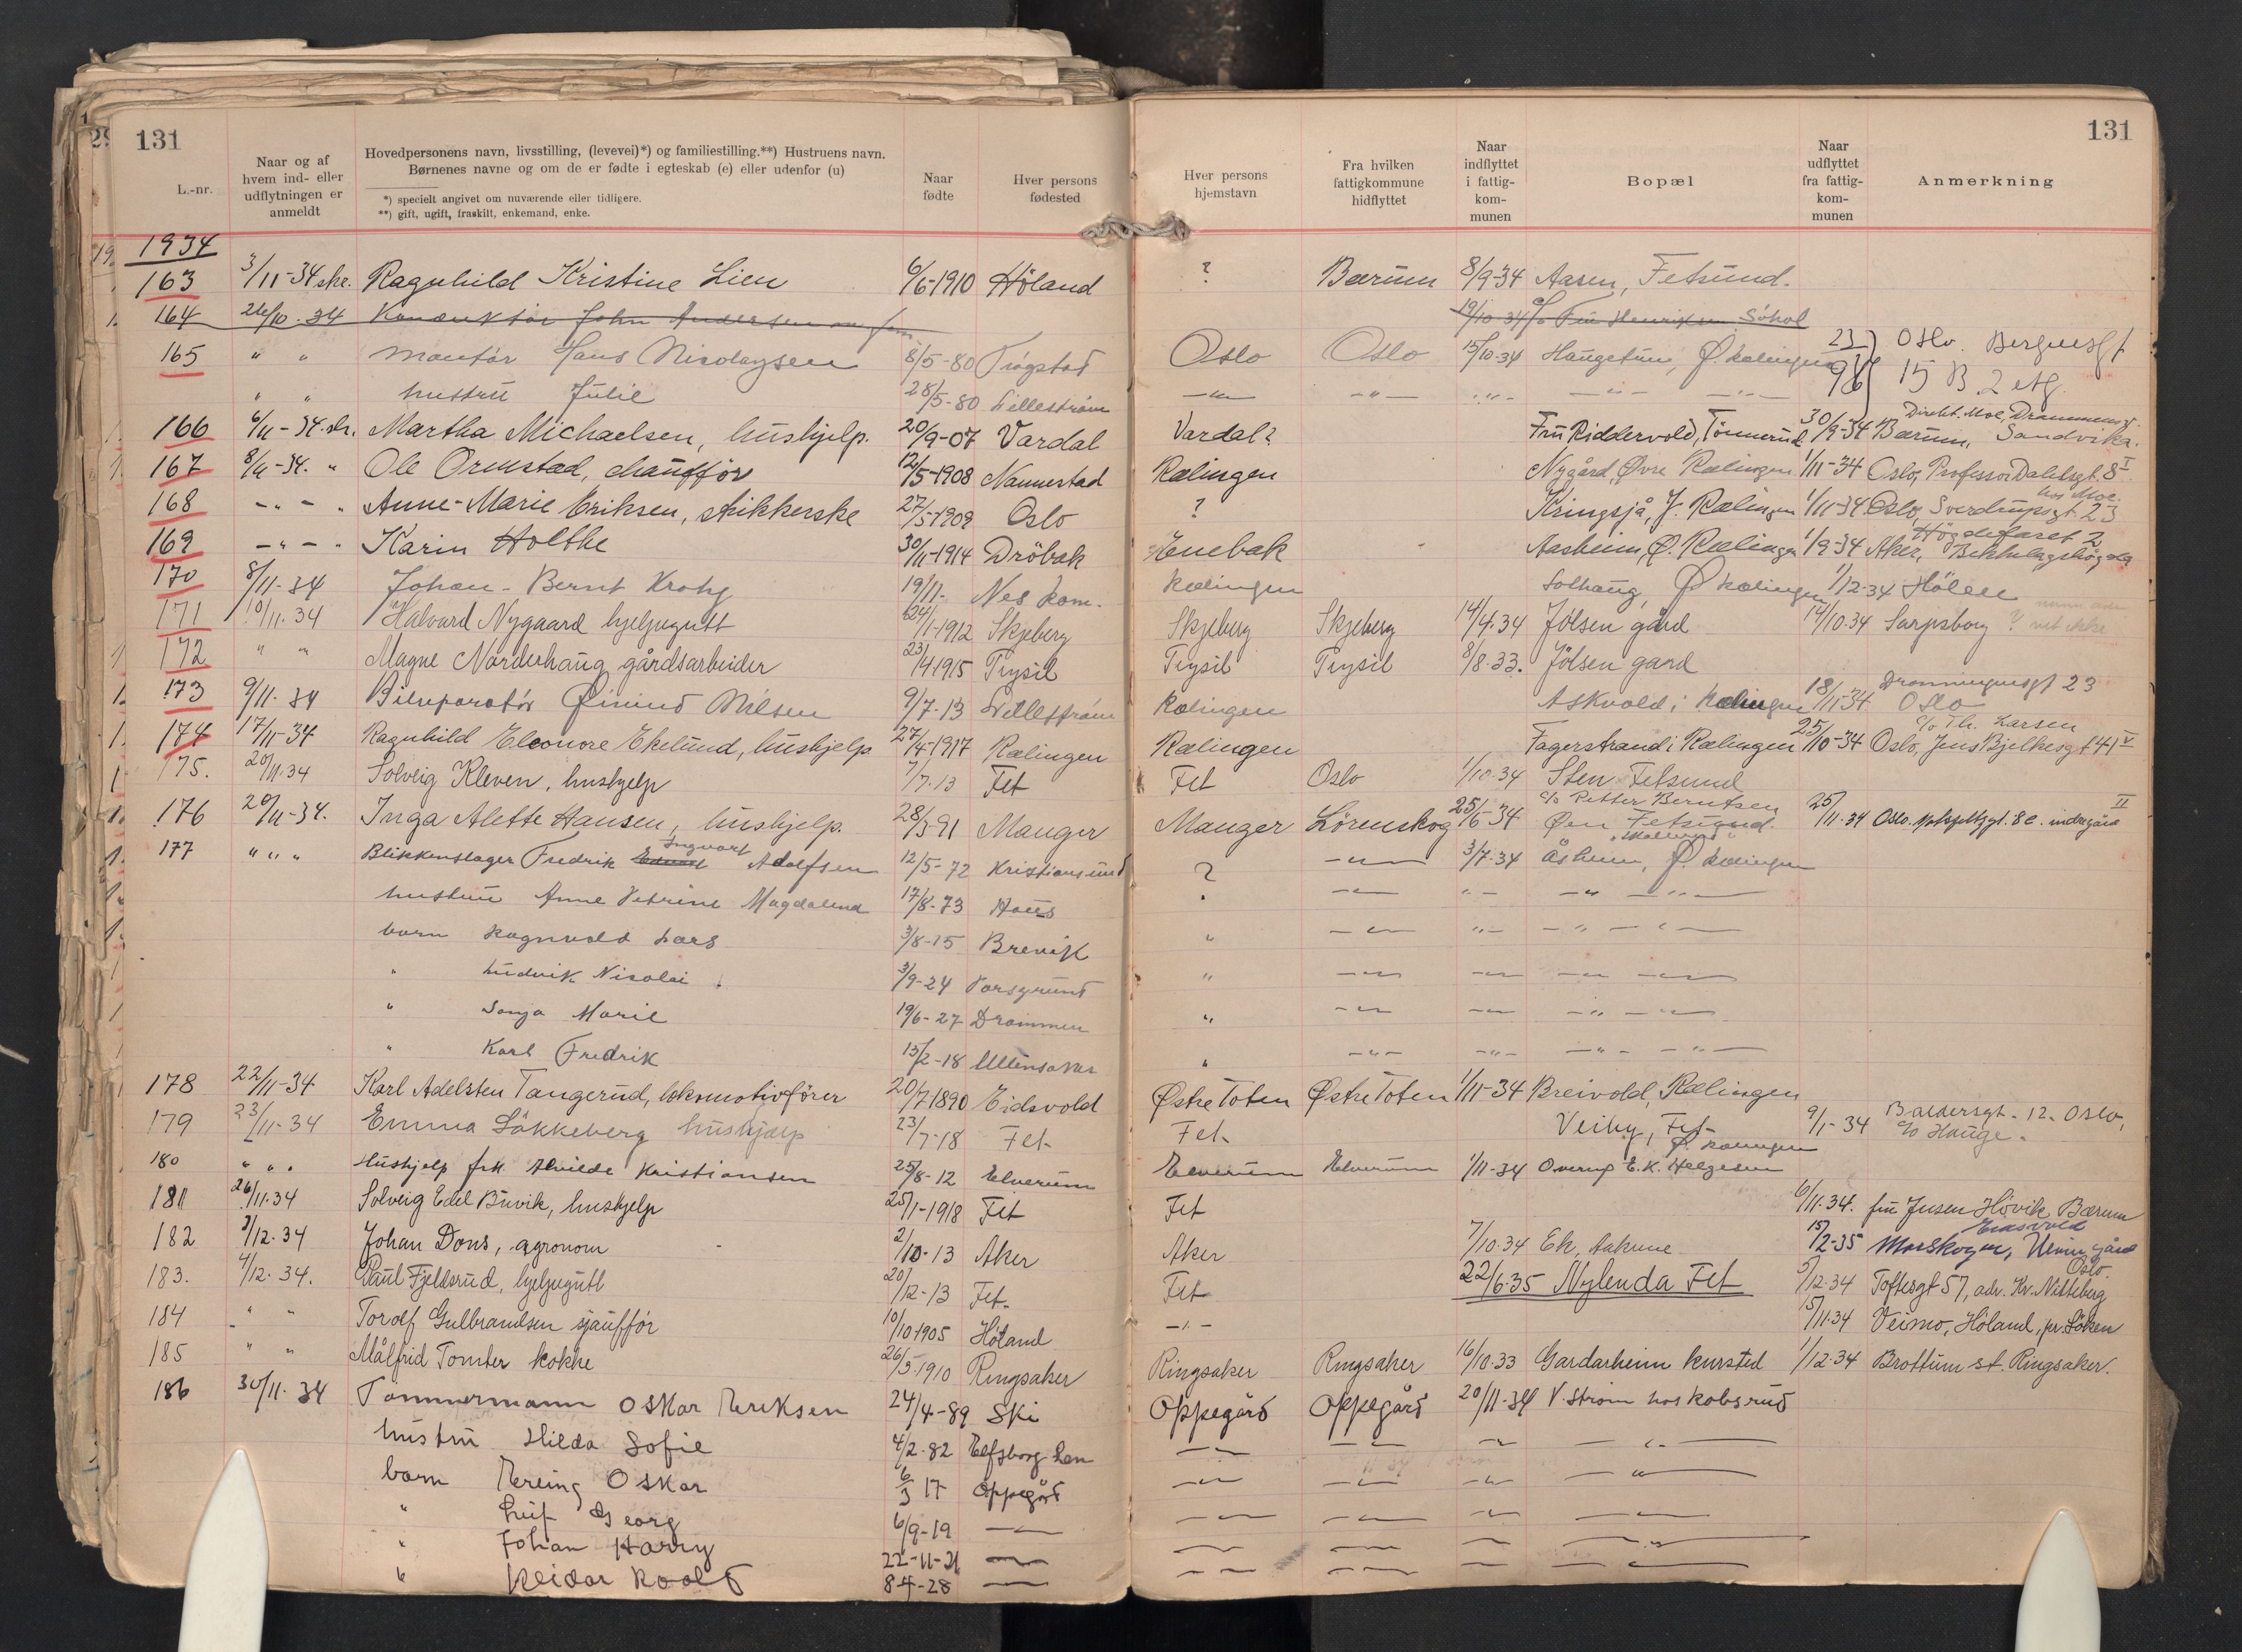 131
L.-nr.
Naar og af hvem ind- eller udflytningen er anmeldt
Hovedpersonens navn, livsstilling, (levevei)*) og familiestilling.**) Hustruens navn.
Børnenes navne og om de er fødte i egteskab (e) eller udenfor (u)
*) specielt angivet om nuværende eller tidligere.
**) gift, ugift, fraskilt, enkemand, enke.
Naar fødte
Hver persons fødested
Hver persons hjemstavn
Fra hvilken fattigkommune hidflyttet
Naar indflyttet i fattig-kom-munen
Bopæl
Naar udflyttet fra fattig-kom-munen
Anmerkning
131
1934
163 3/11-34 skr. Ragnhild Kristine Lien 6/6-1910 Höland ? Bærum 8/9-34 Aasen, Fetsund.
164 26/10-34 Konduktör John Andersen 19/10-34
165 " " Montör Hans Nicolaysen 8/5-80 Trögstad Oslo Oslo 15/10-34 Haugetun, Ø. Rælingen Oslo. Bergensgt
hustru Julie 28/5-80 Lilleström -"- -"- -"- -"- 15 B 2 etg.
166 6/11-34 skr. Martha Michaelsen, hushjelp. 20/9-07 Vardal Vardal? Fru Riddervold, Tönnerud 30/9-34 Bærum, Sandvika.
167 8/11-34. " Ole Ormstad, chaufför 12/5-1908 Nannestad Rælingen Nygård, Øvre Rælingen 1/11-34 Oslo, Professor Dahlsgt. 8 I
168 -"- " Anne-Marie Eriksen, strikkerske 27/5-1909 Oslo ? Kringsjå, Y. Rælingen 1/11-34 Oslo, Sverdrupsgt. 23 hos Moe.
169 -"- " Karin Holthe 30/11-1914 Dröbak Enebak Aasheim, Ø. Rælingen 1/9-34 Aker, Bekkelagshögda Högdefaret 2
170 8/11-34 Johan-Bernt Krohg 19/11- Nes kom. Rælingen Solhaug, Ø Rælingen 1/12-34 Hölen
171 10/11.34 Halvard Nygaard hjelpegutt 24/1-1912 Skjeberg Skjeberg Skjeberg 14/4.34 Jölsen gård 14/10.34 Sarpsborg ?
172 " " Magne Nordenhaug gårdsarbeider 23/4 1915 Trysil Trysil Trysil 8/8.33. Jölsen gård
173 9/11.34 Bilreparatör Øivind Nilsen 9/7-13 Lilleström Rælingen Askvold i Rælingen 18/11-34 Oslo Dronningensgt 23
174 17/11-34 Ragnhild Eleonore Ekelund, hushjelp 27/4-1917 Rælingen Rælingen Fagerstrand i Rælingen 25/10-34 Oslo, Jens Bjelkesgt 41 V c/o Th. Larsen
175. 20/11.34 Solveig Kleven, hushjelp 7/7.13 Fet Fet Oslo 1/10.34 Sten Fetsund
176 20/11-34. Inga Alette Hansen, hushjelp. 28/3-91 Manger Manger Lörenskog 25/6-34 c/o Petter Berntsen Øen Fetsund. 25/11.34 Oslo.
177 " " " Blikkenslager Fredrik Ingvart Adolfsen 12/5-72 Kristiansund ? -"- 3/7-34 Åsheim, Ø. Rælingen
hustru Anne Petrine Magdalena 17/8-73 Haus
barn Ragnvald Lars 3/8-15 Brevik
" Ludvik Nicolai 3/9-24 Porsgrund
" Sonja Marie 19/6-27 Drammen
" Karl Fredrik 13/2-18 Ullensaker
178 22/11-34 Karl Adelsten Tangerud, lokomotivförer 20/7 1890 Eidsvold Østre Toten Østre Toten 1/11-34 Breivold, Rælingen
179 23/11-34 Emma Läkkeberg hushjælp 23/7-18 Fet- Fet- Veiby, Fet- 9/1-34 Baldersgt-12- Oslo, c/o Hauge.
180 " " " Hushjelp frk Alvilde Kristiansen 25/8-12 Elverum Elverum Elverum 1/11-34 Overup E.K. Helgesen Ø. Rælingen
181 26/11.34 Solveig Edel Buvik, hushjelp 25/1-1918 Fet Fet 6/11.34. fru Jensen Hövik Bærum
182 3/12.34 Johan Dons, agronom 2/10-13 Aker Aker 7/10.34 Ek, Gakune 15/2-35 Morskogen, Eidsvold
183. 4/12-34. Paul Fjeldsrud, hjelpegutt 20/12-13 Fet- Fet- 22/6-35 Nylenda Fet 5/12.34 Toftesgt 57, adr. Kr. Nitteberg Oslo.
184 " " Torolf Gulbrandsen sjaufför 10/10 1905 Höland -"- 15/11.34 Veimo, Höland, pr. Löken
185 " " Målfrid Tomter kokke 26/5-1910 Ringsaker Ringsaker Ringsaker 16/10.33 Gardarheim kursted 1/12.34 Brøttum st. Ringsaker.
186 30/11.34 Tømmermann Oskar Eriksen 24/4-89 Ski Oppegård Oppegård 20/11-34 V. Ström hos Kobsrud
hustru Hilda Sofie 4/2-82 Elfsborg Len
barn Erling Oskar 6/3 17 Oppegård
" Leif Georg 6/9-19
" Johan Harry 22-11-21
" Reidar Roald 8-4-28